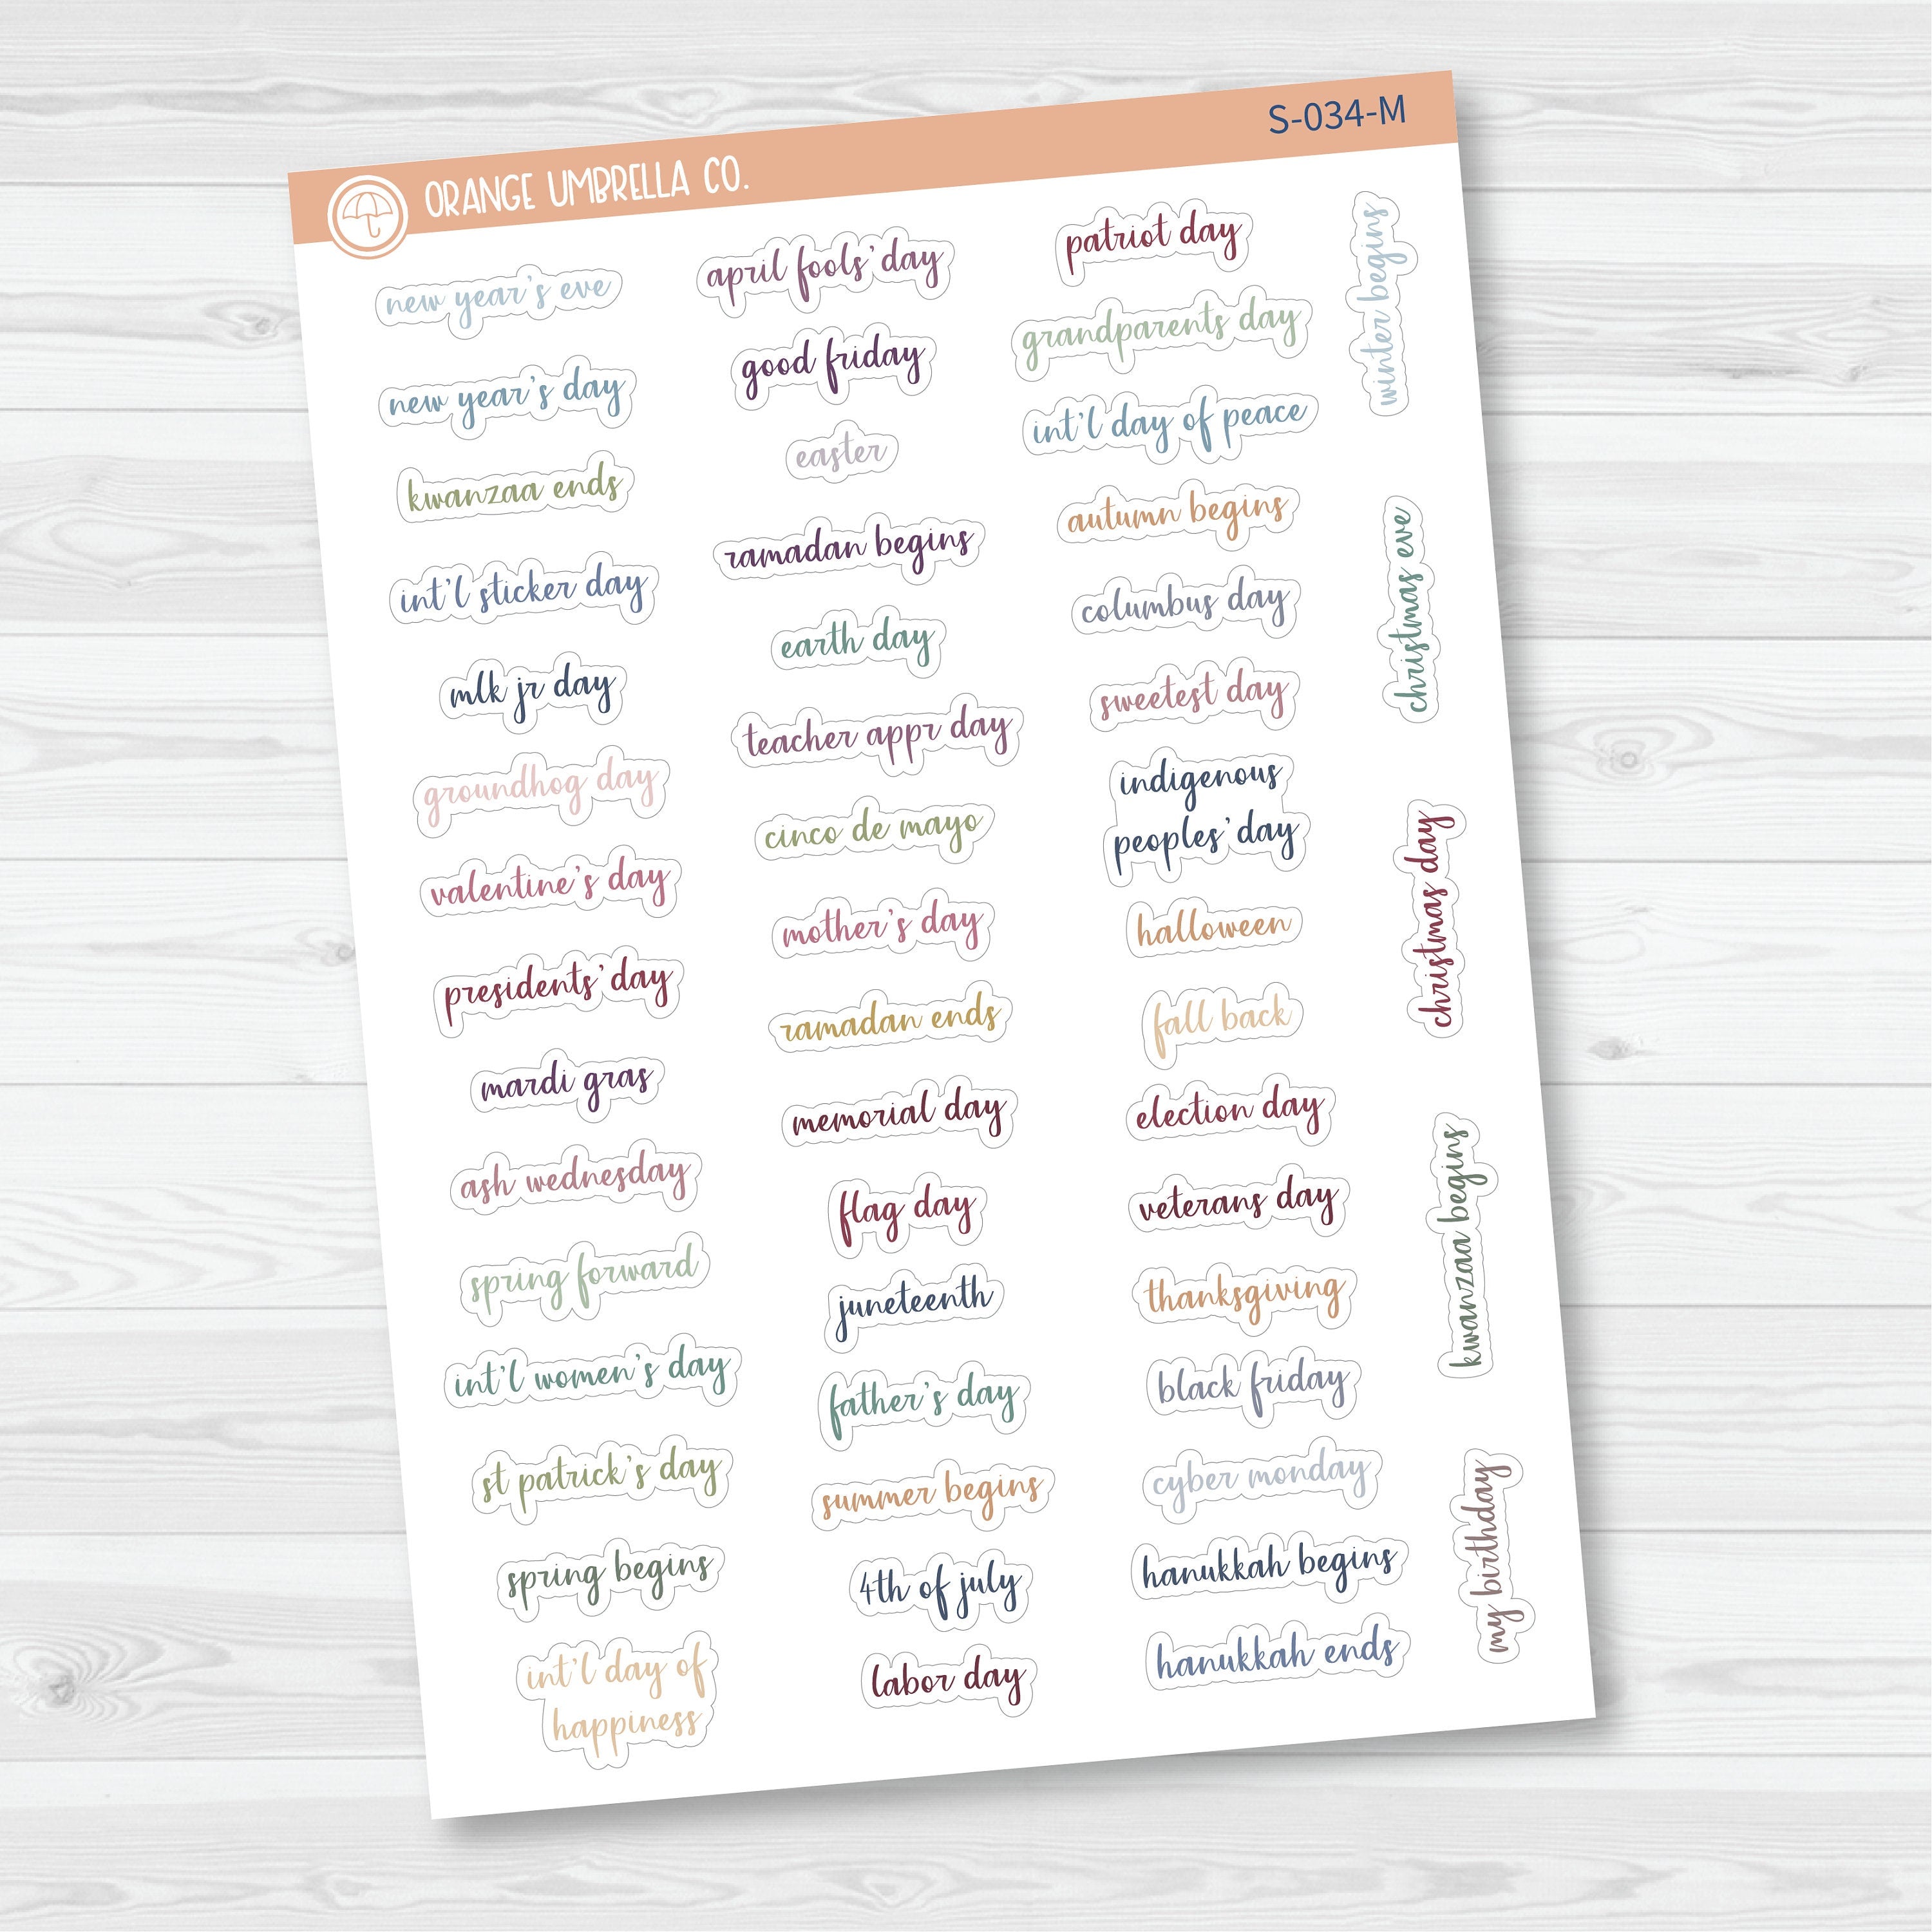 ORANGE UMBRELLA CO.
S-034-M
new year's eve
new year's day
kwanzaa ends
int'l sticker day
mlk jr day
groundhog day
valentine's day
presidents' day
mardi gras
ash wednesday
spring forward
int'l women's day
st patrick's day
spring begins
int'l day of
happiness
april fools' day
good friday
easter
ramadan begins
earth day
teacher appr day
cinco de mayo
mother's day
ramadan ends
memorial day
flag day
juneteenth
father's day
summer begins
4th of july
labor day
patriot day
grandparents day
int'l day of peace
autumn begins
columbus day
sweetest day
indigenous
peoples' day
halloween
fall back
election day
veterans day
thanksgiving
black friday
cyber monday
hanukkah begins
hanukkah ends
winter begins
christmas eve
christmas day
kwanzaa begins
my birthday